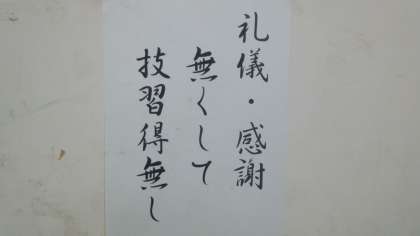 礼儀・感謝
無くして
技習得無し